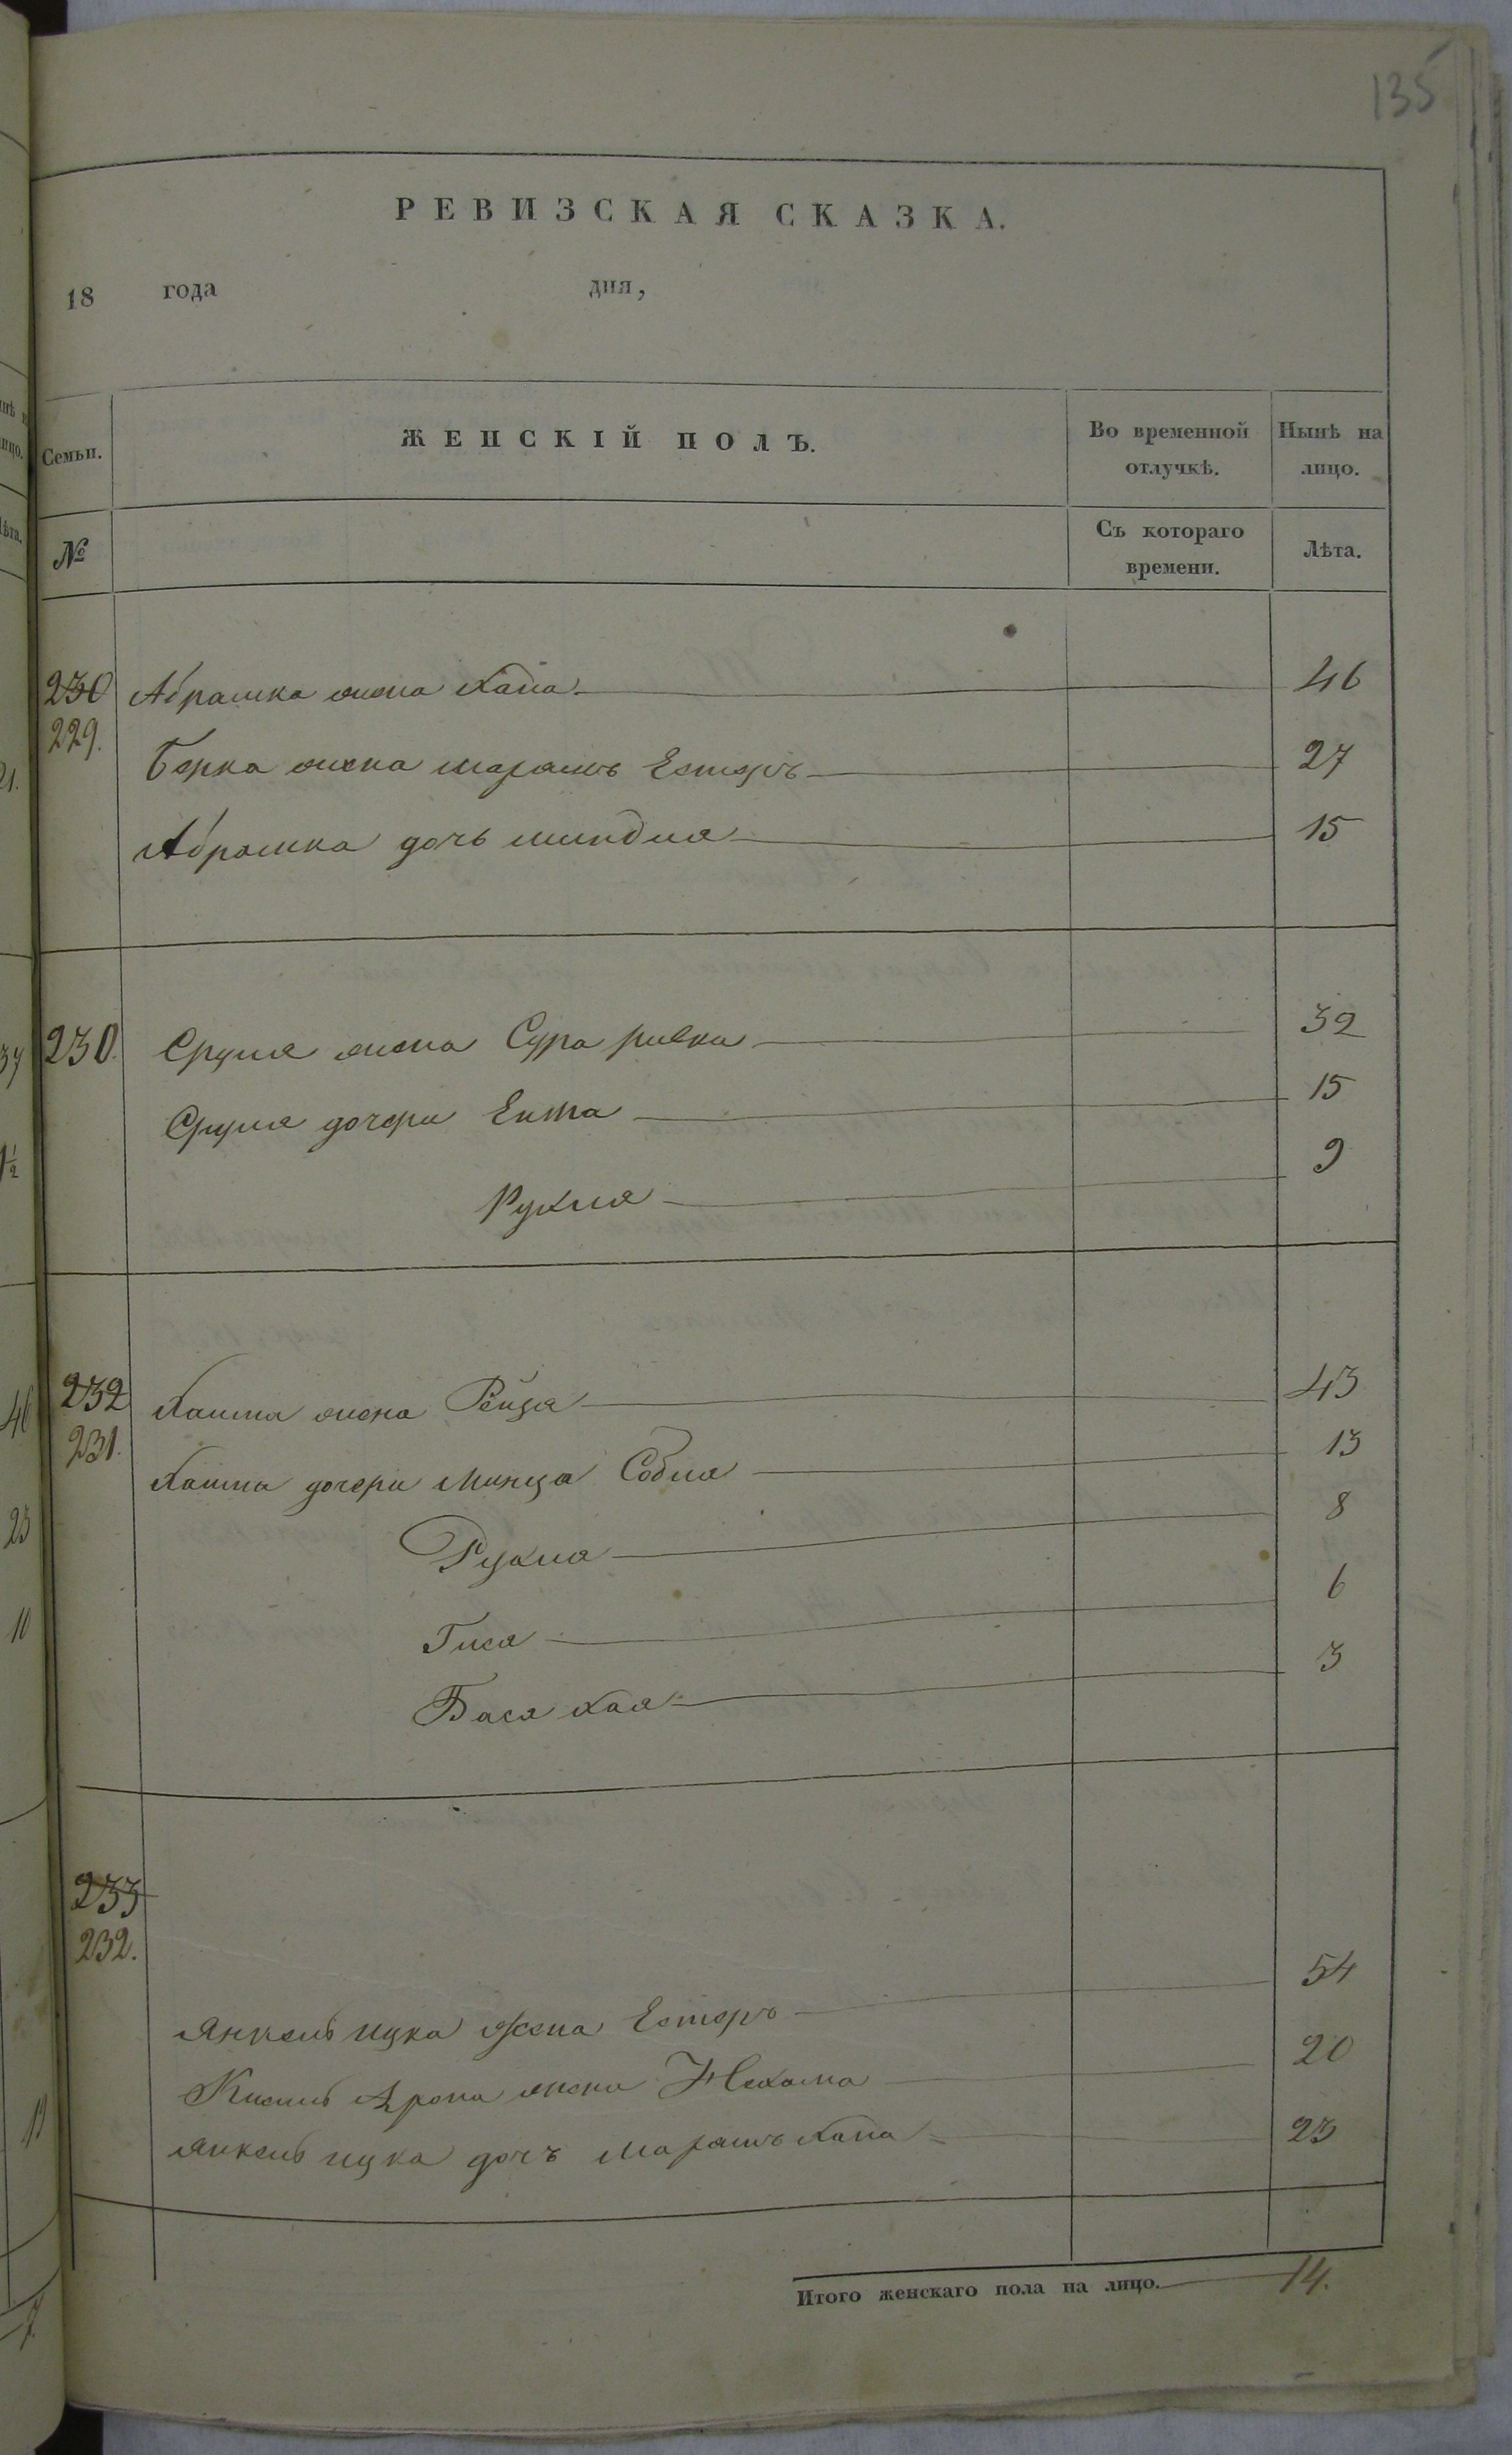 135
РЕВИЗСКАЯ СКАЗКА.
18 года дня,
Семьи. ЖЕНСКІЙ ПОЛЪ. Во временной отлучкѣ. Нынѣ на лицо.
№ Съ котораго времени. Лѣта.
230 Абрамка жена Хана 46
229.
Берка жена Маріашъ Естеръ 27
Абрамка дочь Миндля 15
230. Сруля жена Сура Ривка 32
Сруля дочери Ента 15
Рухля 9
232 Хаима жена Рейза 43
231.
Хаима дочери Минца Собля 13
Рухля 8
Гися 6
Бася Хая 3
233
232.
Янкель Ицка жена Естеръ 54
Кисиль Арона жена Нехама 20
Янкель Ицка дочъ Маріашъ Хана 23
Итого женскаго пола на лицо. 14.